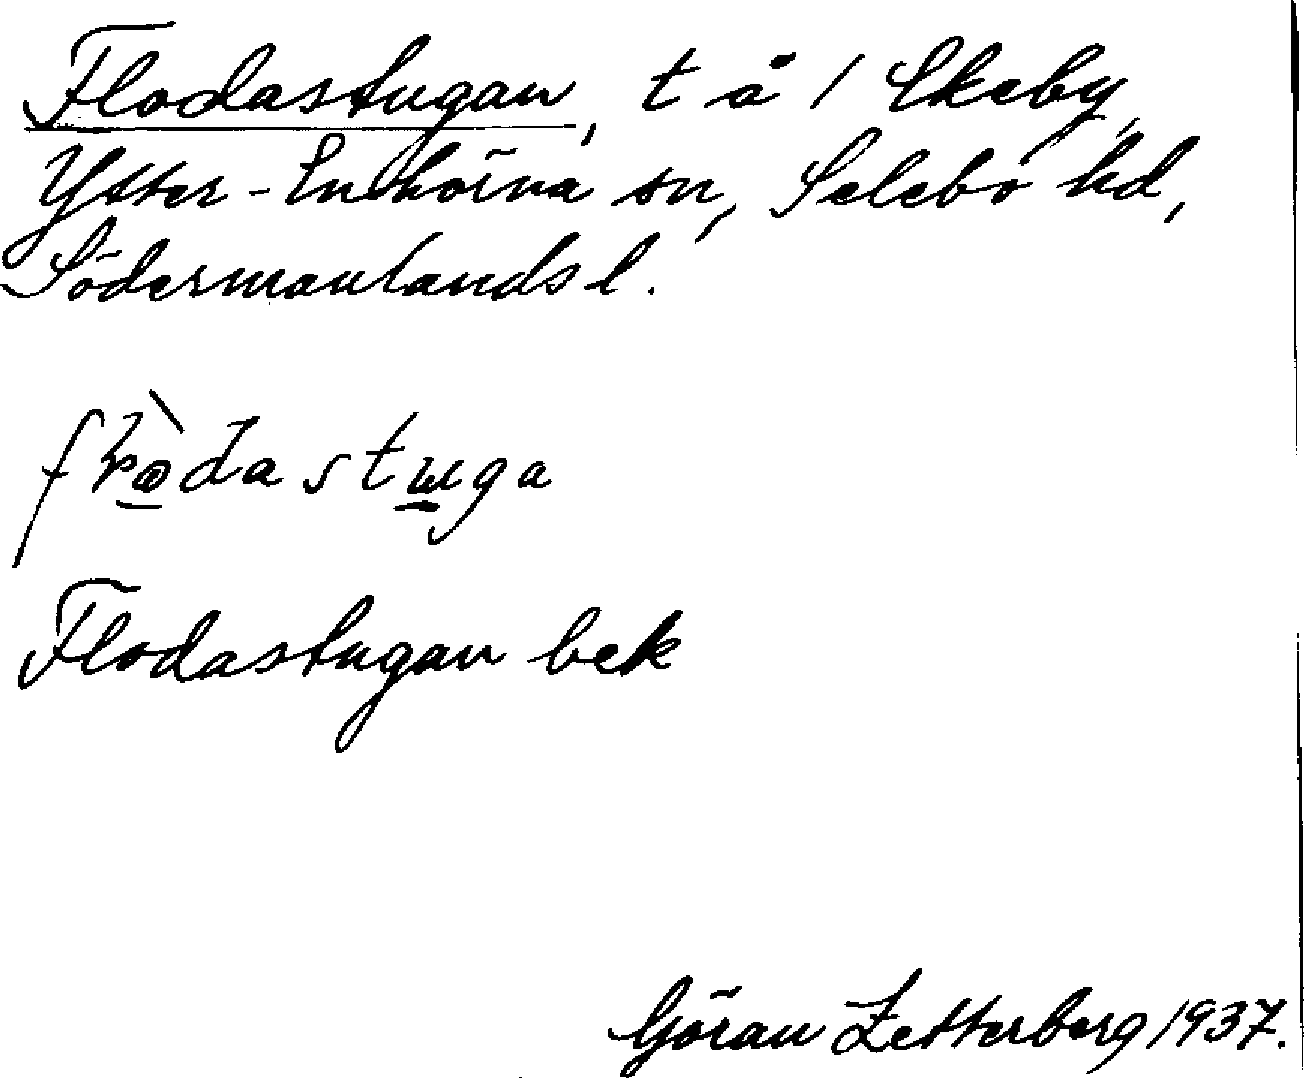 Flodastugan, t å / Skeby,
Ytter-Enhörna sn, Selebo hd,
Södermanlands l.
Flodastugan bek
Göran Zetterberg 1937.